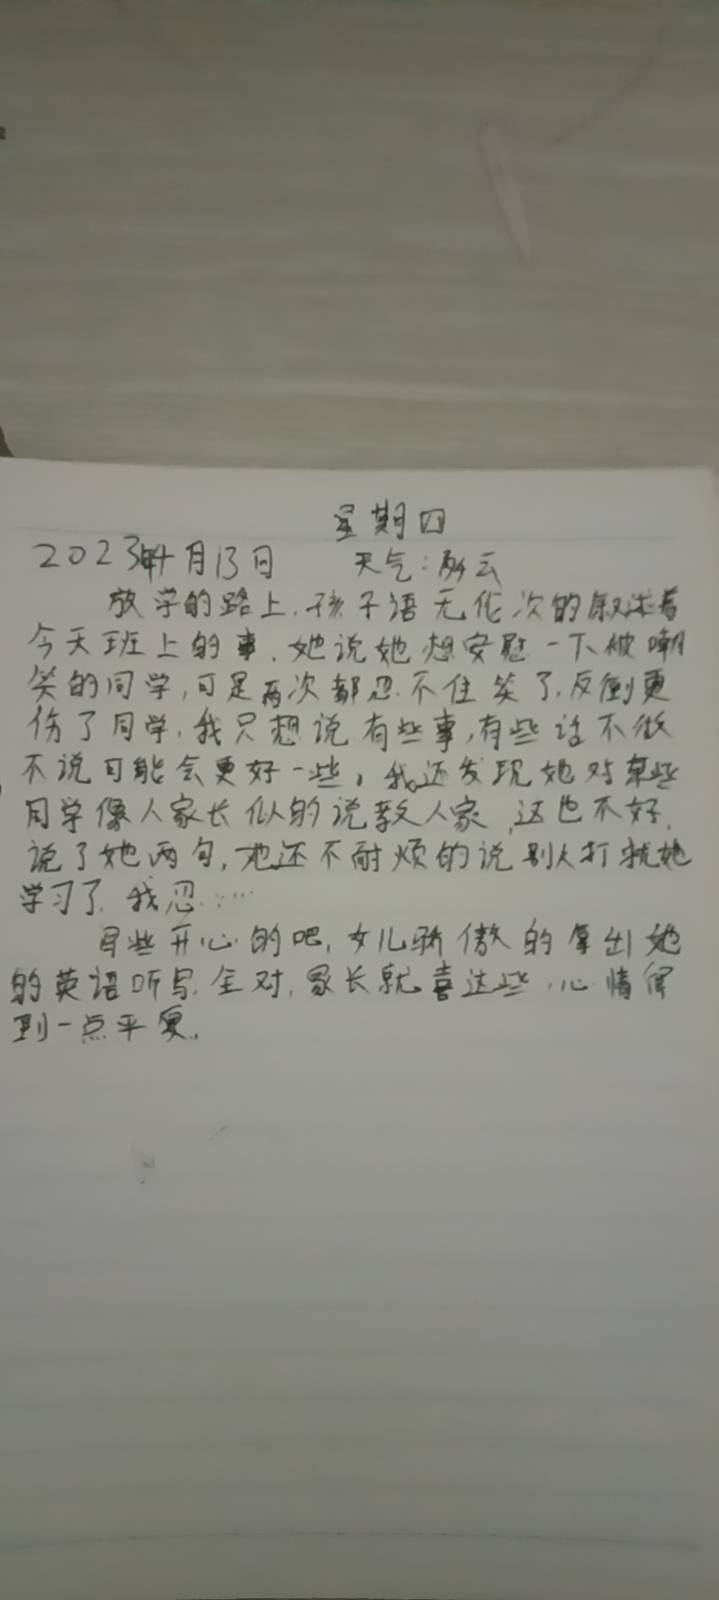 星期四
2023年十月13日 天气:多云
放学的路上,孩子语无伦次的叙述着
今天班上的事,她说她想安慰一下被嘲
笑的同学,可是两次都忍不住笑了,反倒更
伤了同学,我只想说有些事,有些话不做
不说可能会更好一些,我还发现她对某些
同学像人家长似的说教人家,这也不好,
说了她两句,她还不耐烦的说别人打扰她
学习了,我忍……
写些开心的吧,女儿骄傲的拿出她
的英语听写,全对,家长就喜这些,心情得
到一点平复,